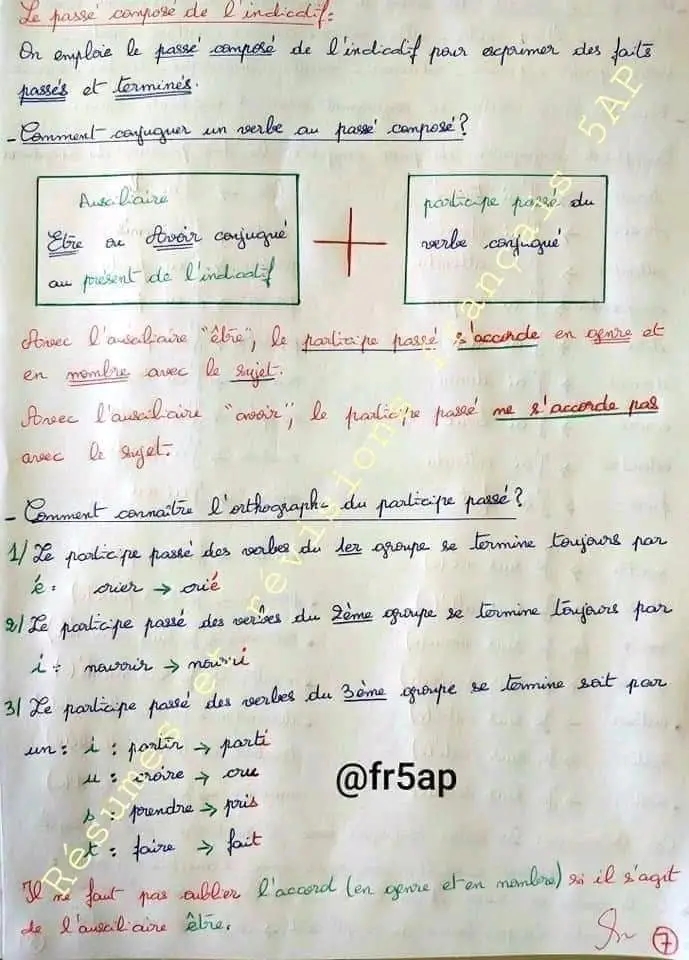 Le passé composé de l'indicatif:
On emploie le passé composé de l'indicatif pour exprimer des faits
passés et terminés.
- Comment conjuguer un verbe au passé composé?
Auxiliaire
Etre ou Avoir conjugué
au présent de l'indicatif
+
participe passé du
verbe conjugué
Avec l'auxiliaire "être", le participe passé s'accorde en genre et
en nombre avec le sujet.
Avec l'auxiliaire "avoir", le participe passé ne s'accorde pas
avec le sujet.
- Comment connaître l'orthographe du participe passé?
1/ Le participe passé des verbes du 1er groupe se termine toujours par
é: crier → crié
2/ Le participe passé des verbes du 2ème groupe se termine toujours par
i: nourrir → nourri
3/ Le participe passé des verbes du 3ème groupe se termine soit par
un: i: partir → parti
u: croire → cru
s: prendre → pris
t: faire → fait
@fr5ap
Il ne faut pas oublier l'accord (en genre et en nombre) si il s'agit
de l'auxiliaire être.
7
Résumés et révisions français 5AP